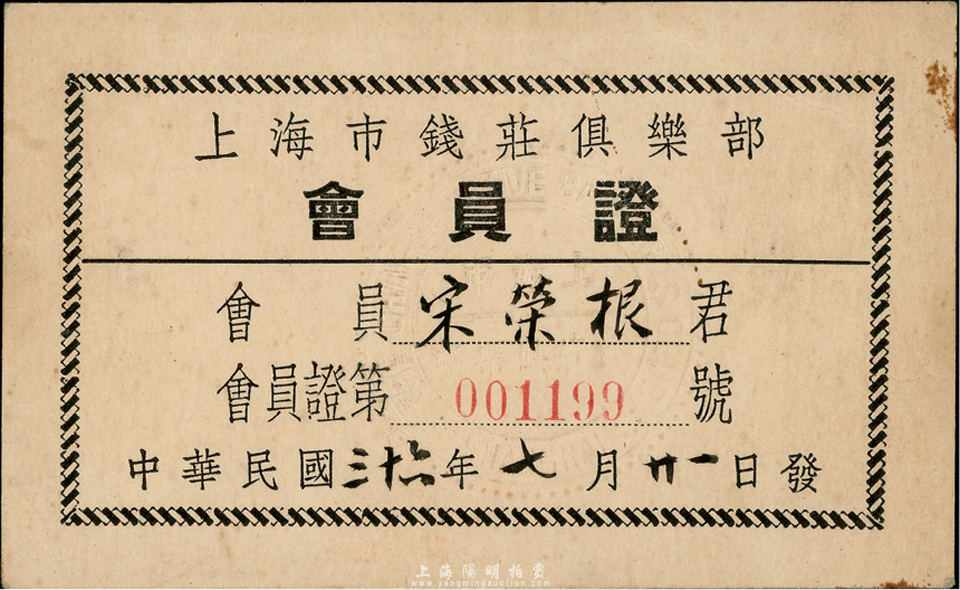 上海市錢莊俱樂部
會員證
會員宋榮根君
會員證第001199號
中華民國三十六年七月廿一日發
上海陽明拍賣
www.yangmingauction.com